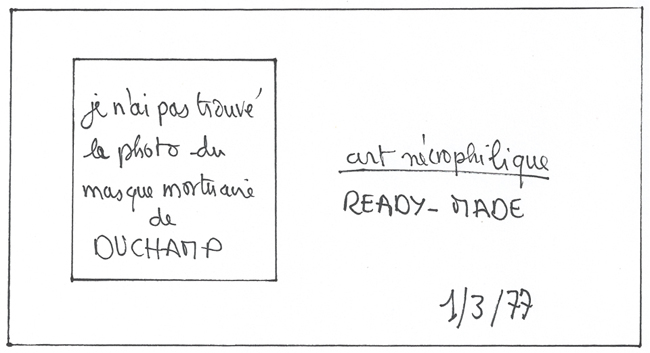 je n'ai pas trouvé
la photo du
masque mortuaire
de
DUCHAMP
art nécrophilique
READY-MADE
1/3/77